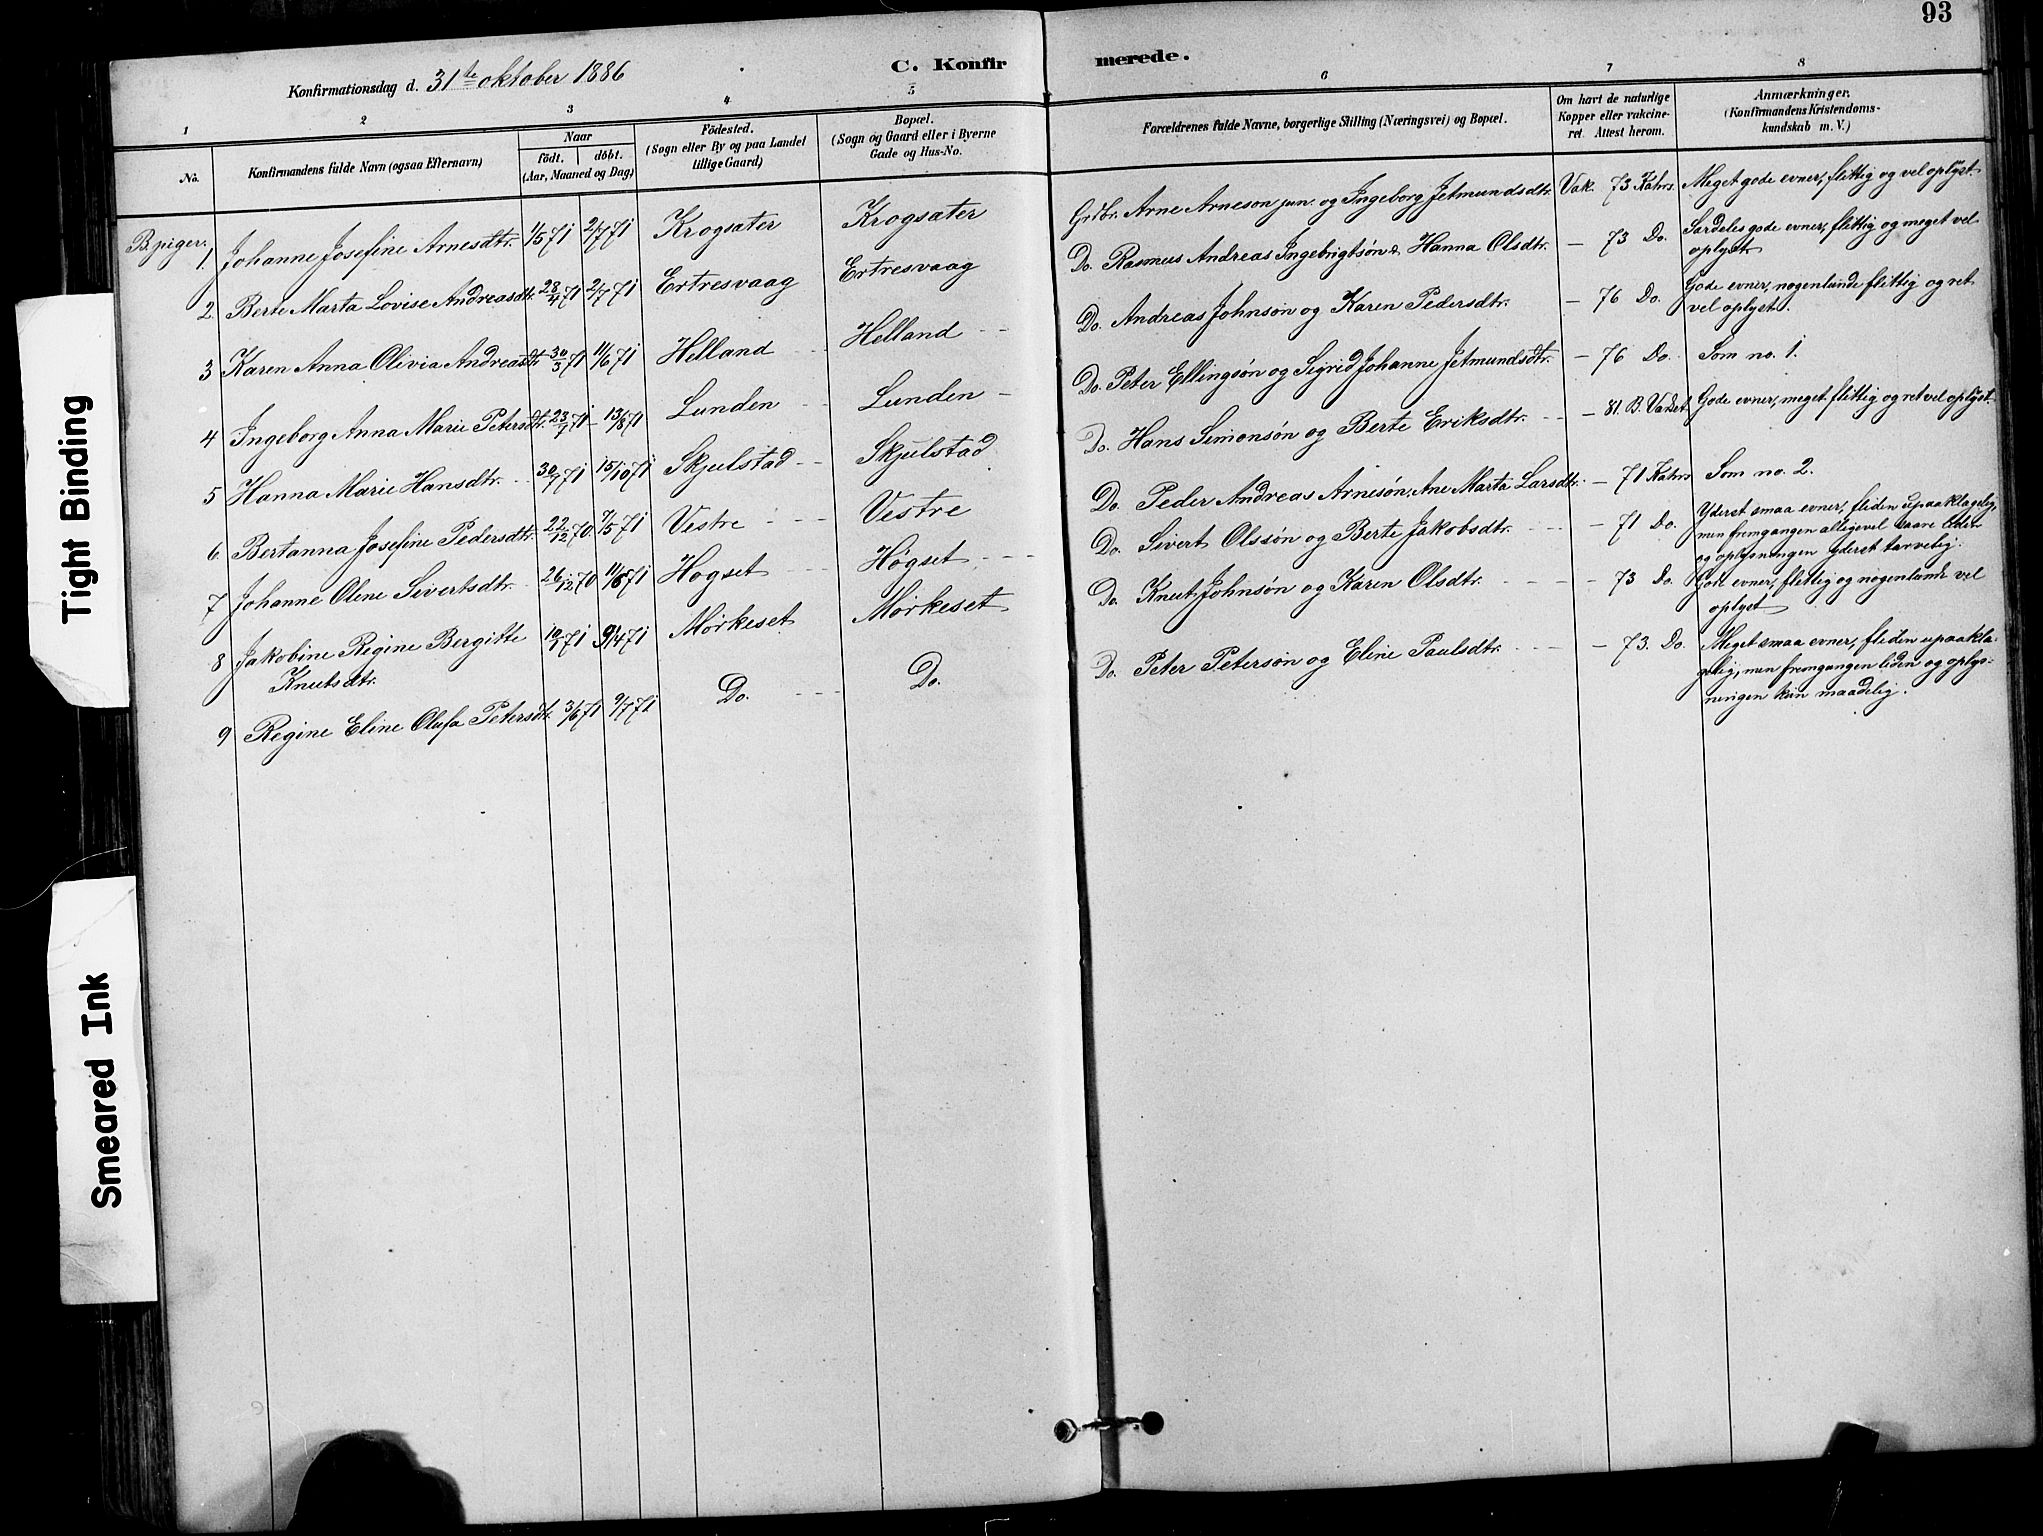 93
Konfirmationsdag d. 31te oktober 1886
C. Konfirmerede.
1 2 3 4 5 6 7 8
No. Konfirmandens fulde Navn (ogsaa Efternavn) Naar födt. döbt. (Aar, Maaned og Dag) Födested. (Sogn eller By og paa Landet tillige Gaard) Bopæl. (Sogn og Gaard eller i Byerne Gade og Hus-No. Forældrenes fulde Navne, borgerlige Stilling (Næringsvei) og Bopæl. Om havt de naturlige Kopper eller vakcineret. Attest herom. Anmærkninger. (Konfirmandens Kristendomskundskab m. V.)
B. piger.
1. Johanne Josefine Arnesdtr. 1/5 71 2/7 71 Krogsæter Krogsæter Grdbr. Arne Arneson jun. og Ingeborg Jetmundsdtr. Vak. 73 Kahrs Meget gode evner, flittig og vel oplyst.
2. Berte Marta Lovise Andreasdtr. 28/4 71 2/7 71 Ertresvaag Ertresvaag Do. Rasmus Andreas Ingebrigtsøn & Hanna Olsdtr. – 73 Do. Særdeles gode evner, flittig og meget vel
oplyst.
3 Karen Anna Olivia Andreasdtr. 30/3 71 11/6 71 Helland Helland Do. Andreas Johnsøn og Karen Pedersdtr. – 76 Do. Gode evner, nogenlunde flittig og ret
vel oplyst.
4 Ingeborg Anna Marie Petersdtr. 23/7 71 13/8 71 Lunden Lunden Do. Peter Ellingsøn og Sigrid Johanne Jetmundsdtr. – 76 Do. Som no. 1.
5 Hanna Marie Hansdtr. 30/9 71 15/10 71 Skjulstad Skjulstad Do. Hans Simonsøn og Berte Eriksdtr. – 81. B. Vadset Gode evner, meget flittig og ret vel oplyst.
6. Bertanna Josefine Pedersdtr. 22/12 70. 7/5 71 Vestre Vestre Do. Peder Andreas Arnesøn, Ane Marta Larsdtr. – 71 Kahrs Som no. 2.
7 Johanne Oline Sivertsdtr. 26/12 70 11/6 71 Høgset Høgset Do. Sivert Olssøn og Berte Jakobsdtr. – 71 Do. Yderst smaa evner, fliden upaaklagelig,
men fremgangen alligevel bare liden
og oplysningen yderst tarvelig.
8 Jakobine Regine Bergitte 71 9/4 71 Mørkeset Mørkeset Do. Knut Johnsøn og Karen Olsdtr. – 73 Do. Gode evner, flittig og nogenlunde vel
Knutsdtr. oplyst
9 Regine Eline Olufa Petersdtr. 3/6 71 9/7 71 Do. Do. Do. Peter Petersøn og Eline Paulsdtr. – 73. Do. Meget smaa evner, fliden upaakla-
gelig, men fremgangen liden og oplys-
ningen kun maadelig.
Tight Binding
Smeared Ink